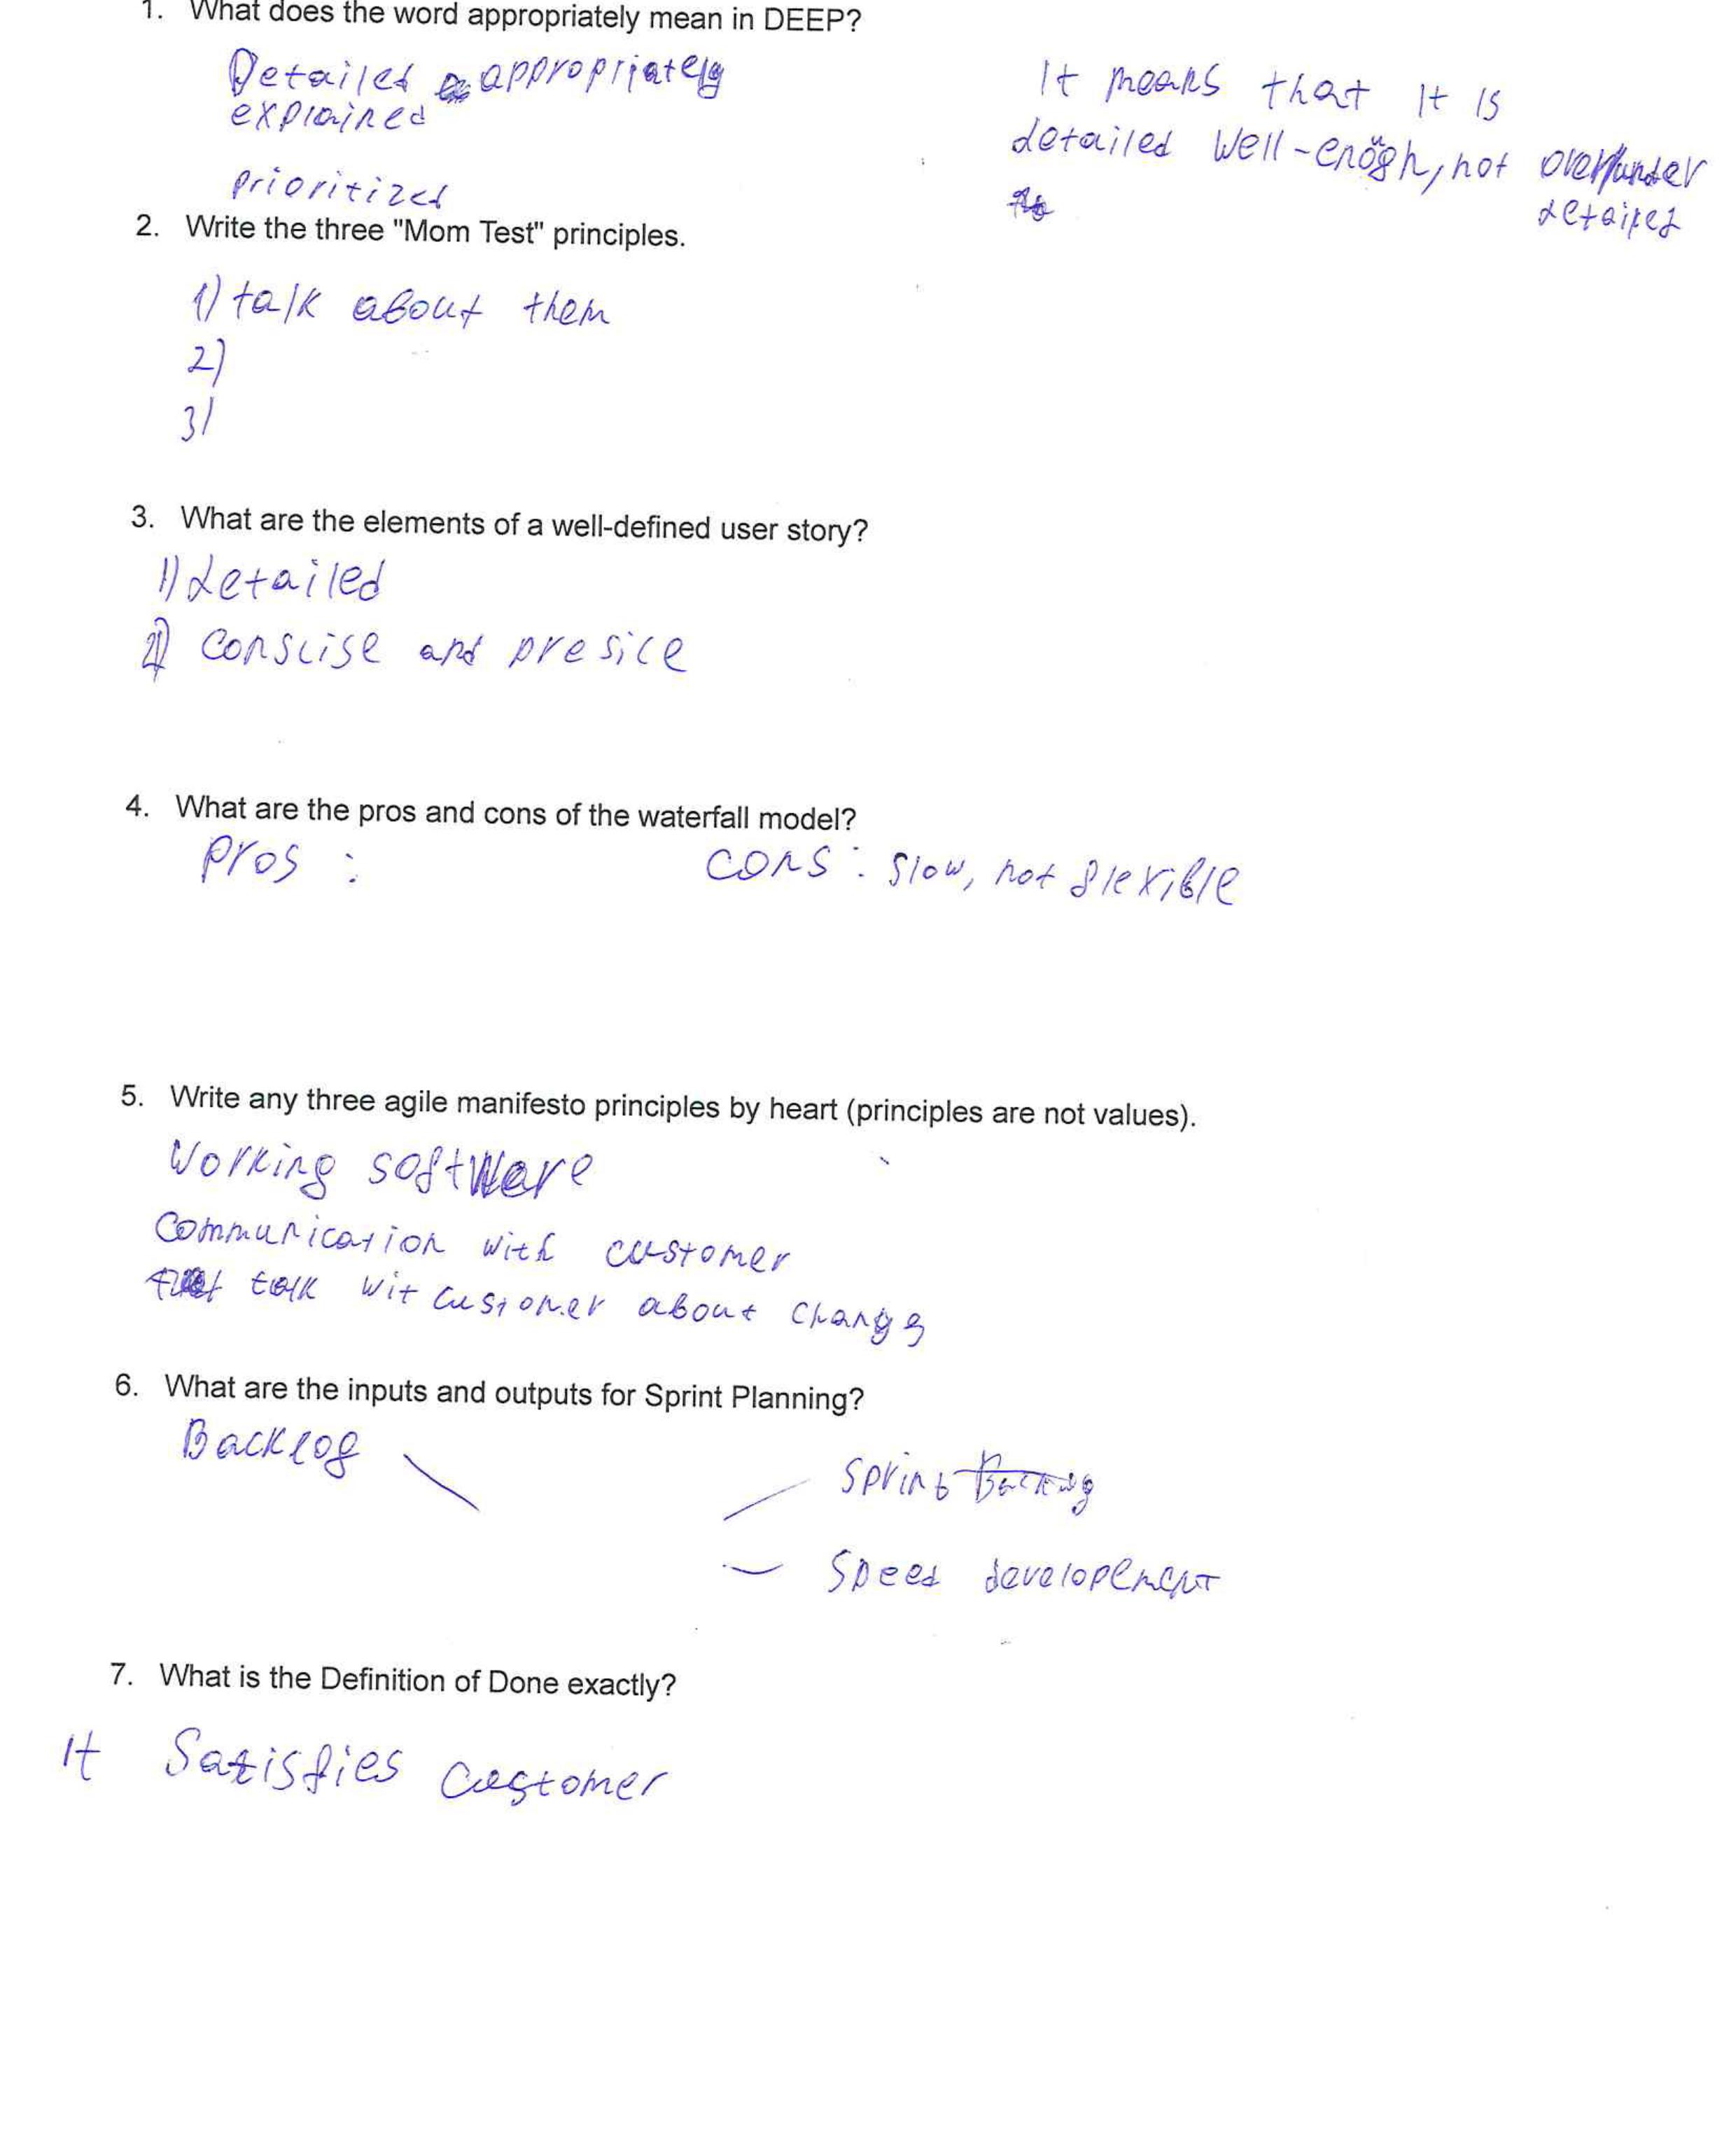 1. What does the word appropriately mean in DEEP?
Detailed appropriately
explained
prioritized
It means that it is
detailed well-enough, not over/under
detailed
2. Write the three "Mom Test" principles.
1) talk about them
2)
3)
3. What are the elements of a well-defined user story?
1) detailed
2) conscise and presice
4. What are the pros and cons of the waterfall model?
pros :
cons : slow, not flexible
5. Write any three agile manifesto principles by heart (principles are not values).
Working software
Communication with customer
talk wit customer about change
6. What are the inputs and outputs for Sprint Planning?
Backlog
Sprint Backlog
Speed developement
7. What is the Definition of Done exactly?
It Satisfies customer